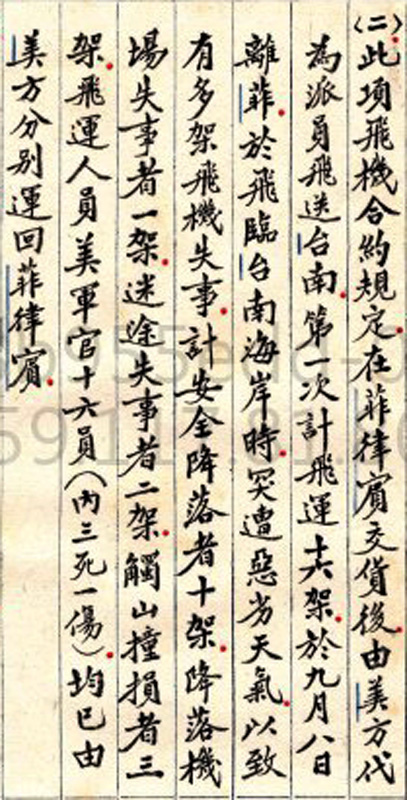 (二)此項飛機合約規定在菲律賓交貨後由美方代
為派員飛送台南第一次計飛運十六架於九月八日
離菲於飛臨台南海岸時突遭惡劣天氣以致
有多架飛機失事計安全降落者十架降落機
場失事者一架迷途失事者二架觸山撞損者三
架飛運人員美軍官十六員(內三死一傷)均已由
美方分別運回菲律賓